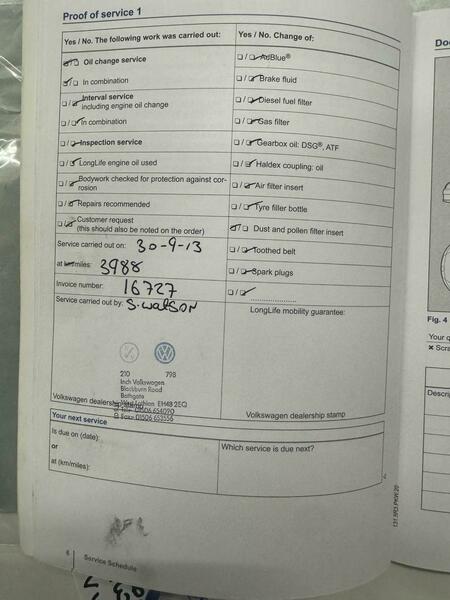 Proof of service 1
Yes / No. The following work was carried out:
Oil change service
In combination
Interval service
including engine oil change
In combination
Inspection service
LongLife engine oil used
Bodywork checked for protection against cor-
rosion
Repairs recommended
Customer request
(this should also be noted on the order)
Service carried out on: 30-9-13
at km/miles: 3988
Invoice number: 16727
Service carried out by: S. Watson
210 798
Inch Volkswagen
Blackburn Road
Bathgate
West Lothian EH48 2EQ
Tel: 01506 654090
Fax: 01506 653556
Volkswagen dealership stamp
Yes / No. Change of:
AdBlue®
Brake fluid
Diesel fuel filter
Gas filter
Gearbox oil: DSG®, ATF
Haldex coupling: oil
Air filter insert
Tyre filler bottle
Dust and pollen filter insert
Toothed belt
Spark plugs
LongLife mobility guarantee:
Volkswagen dealership stamp
Your next service
Is due on (date):
or
at (km/miles):
Which service is due next?
131.5R3.PKW.20
6 Service Schedule
Do
Fig. 4
Your q
× Scra
Descri